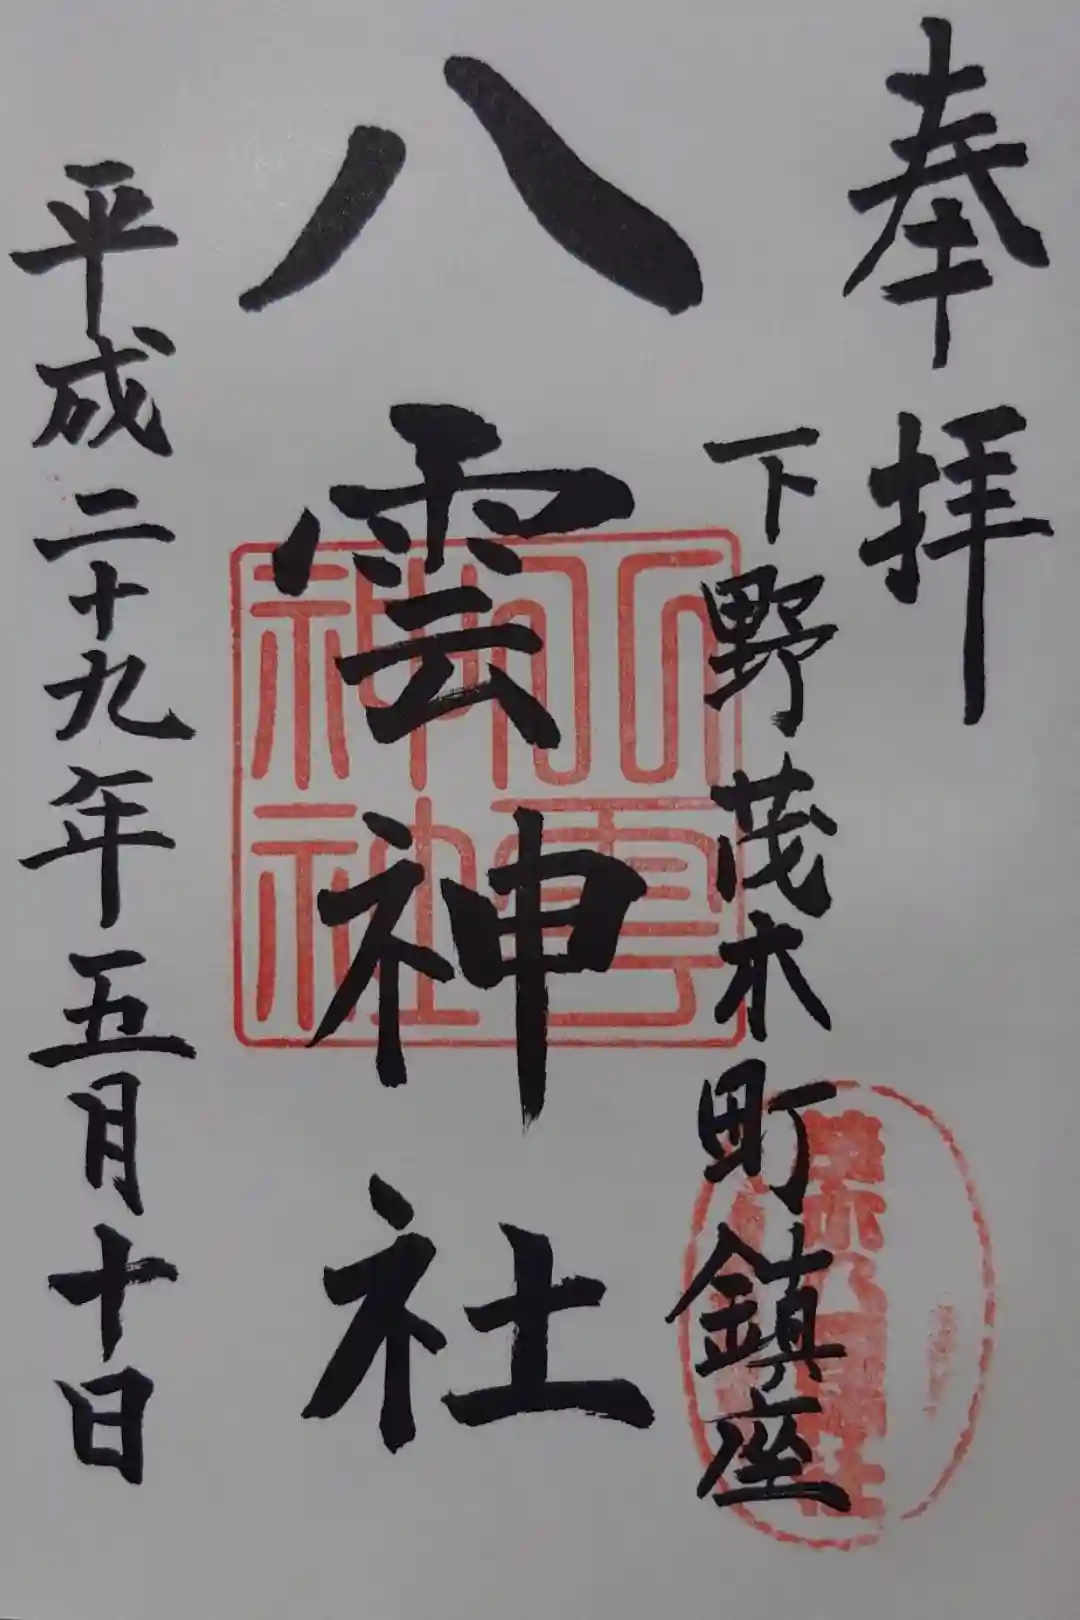 奉拝
下野茂木町鎮座
八雲神社
平成二十九年五月十日
八雲
神社